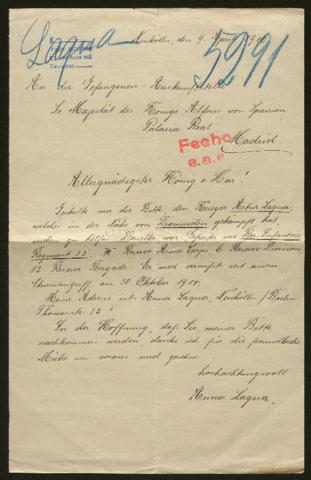 Lagua
5291
Neukölln, den 9. 
An die Gefangenen-Auskunftstelle
Sr Majestät des Königs Alfons von Spanien
Palacio Real
Madrid.
Fecho
e.a.e
Allergnädigster König u. Herr!
Gestatte mir die Bitte, den Krieger Lagua,
welcher in der Nähe von Dixmuiden gekämpft hat,
zu helfen. Derselbe war Gefreiter im Res. Infanterie
Regiment Reserve Armee Corps, 6. Reserve Division
12 Reserve Brigade. Er wird vermisst seit einem
Sturmangriff am 30 Oktober 1914.
Meine Adresse ist: Anna Lagua, Neukölln/Berlin
12
In der Hoffnung, daß Sie meiner Bitte
nachkommen werden, danke ich für die freundliche
Mühe im voraus und zeichne
hochachtungsvoll
Anna Lagua.